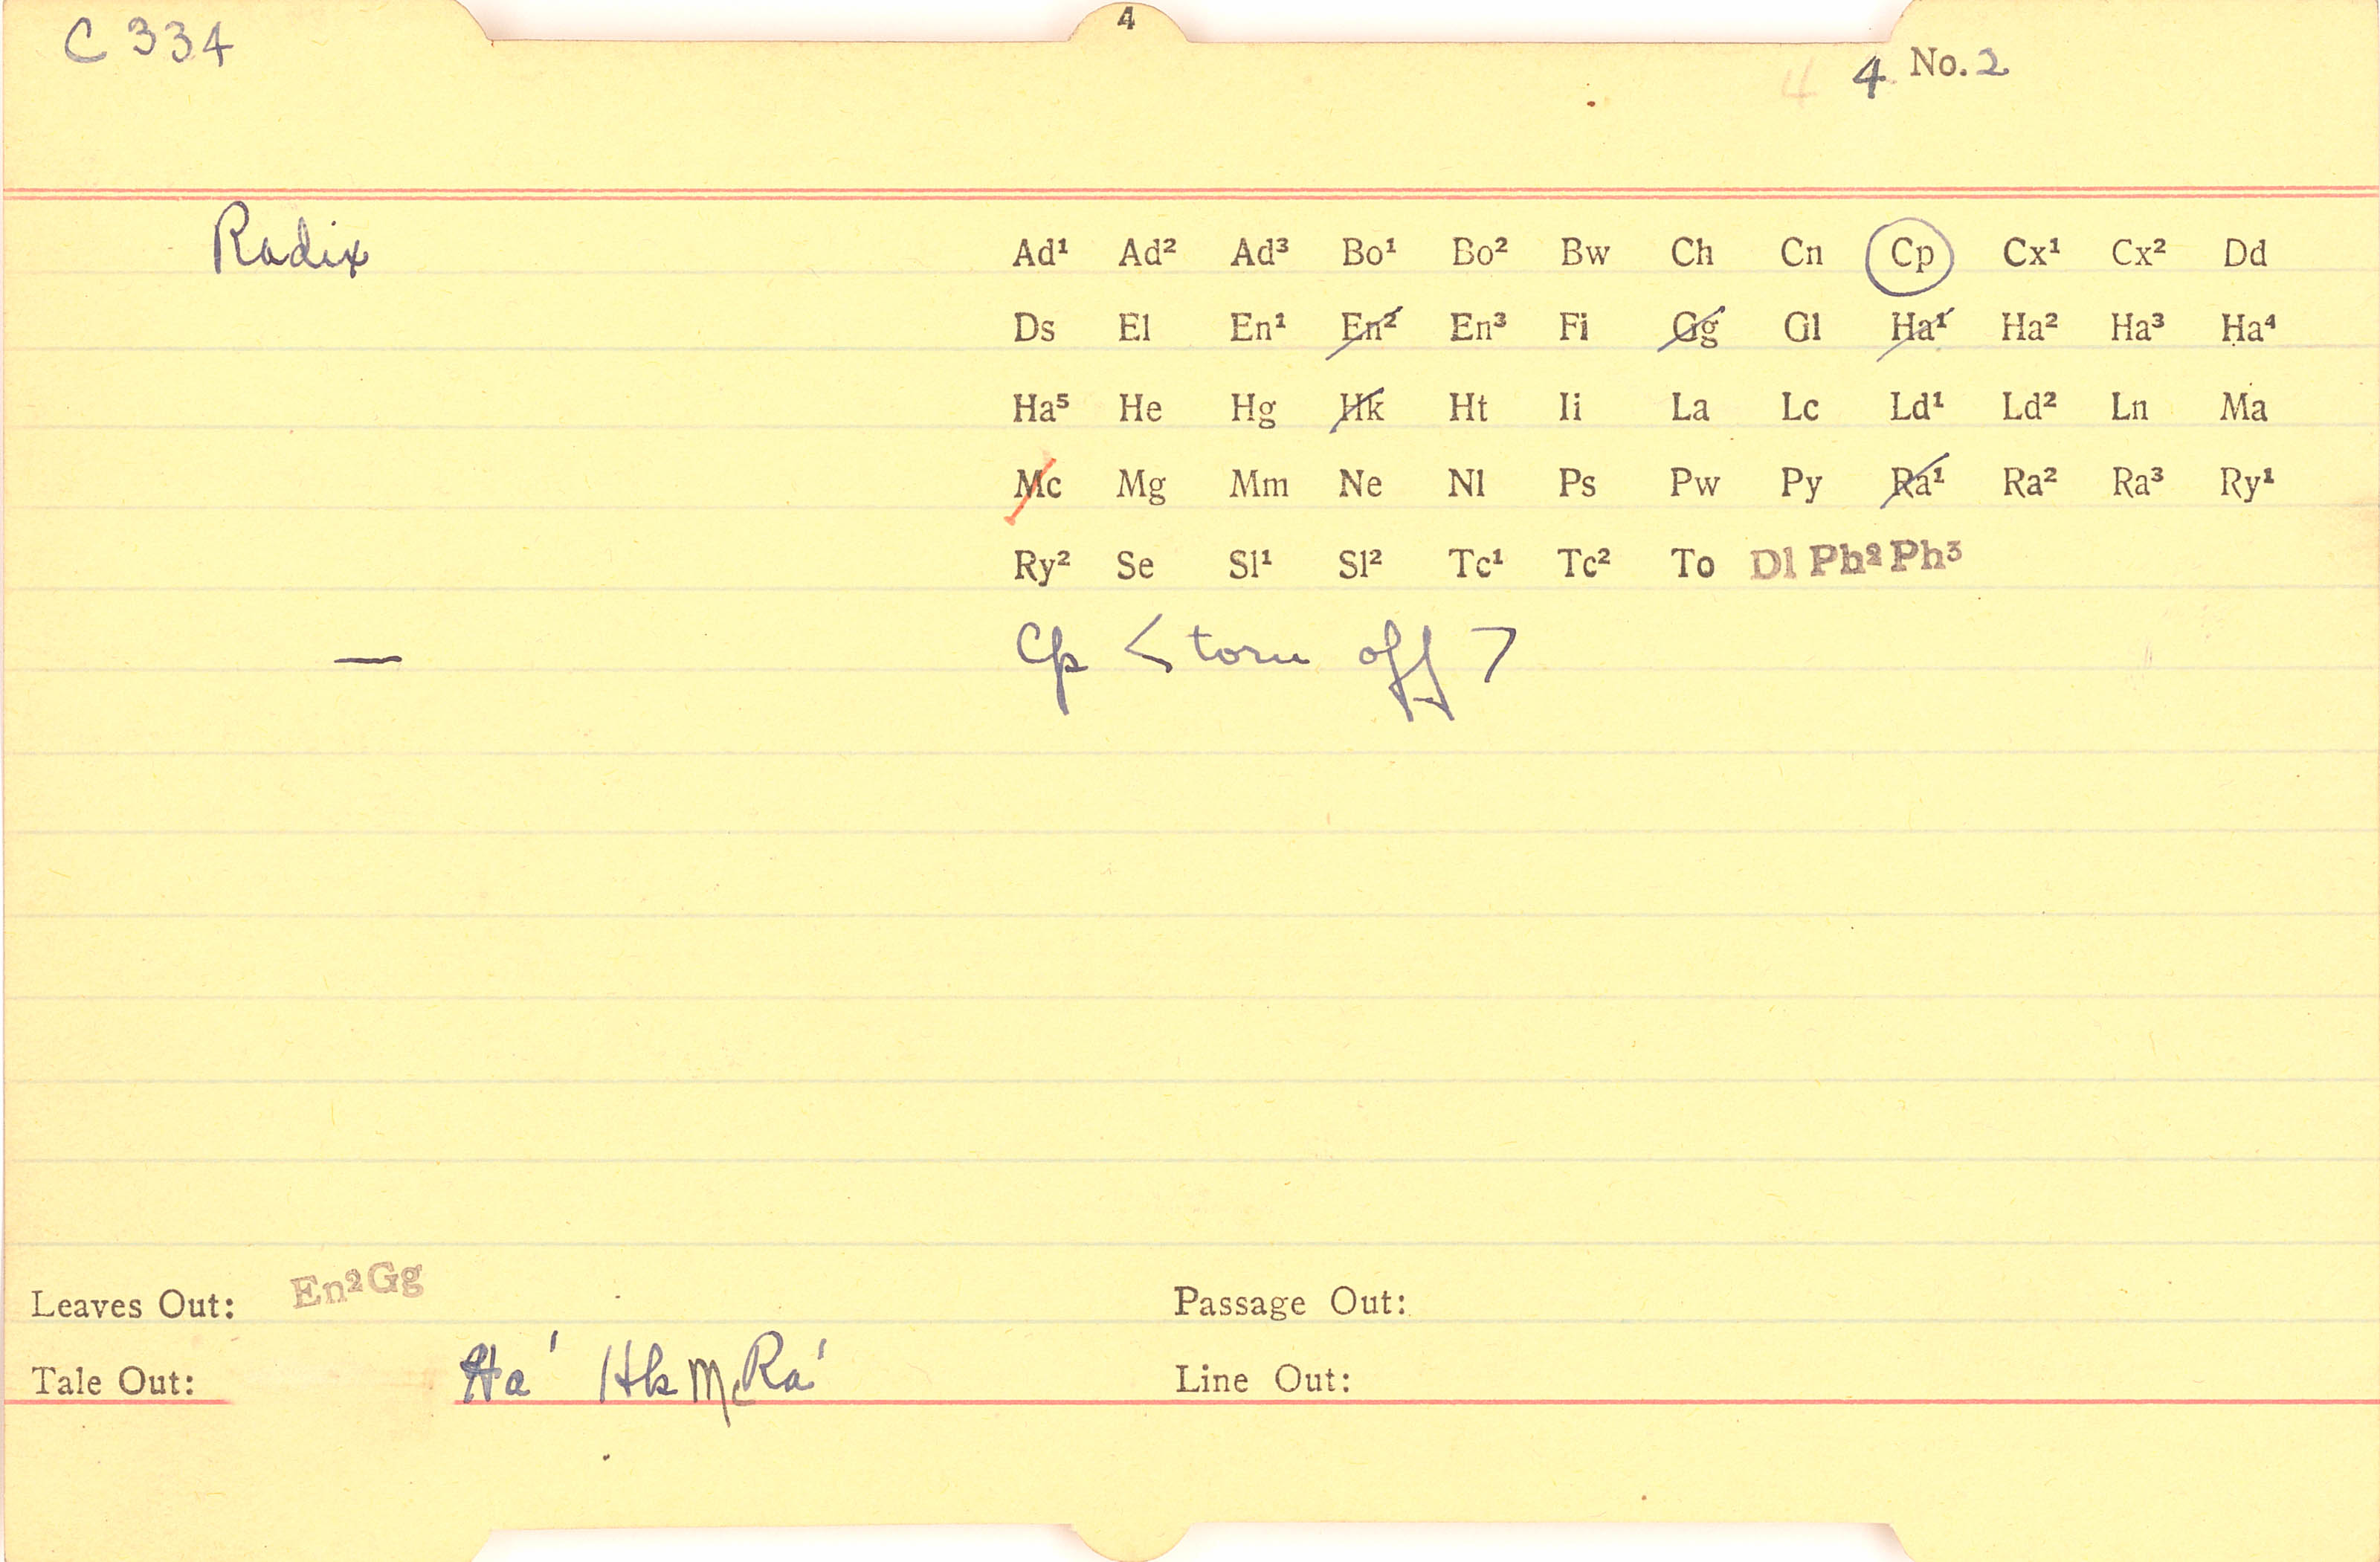 4
C 334
4 4 No. 2
Radix Ad¹ Ad² Ad³ Bo¹ Bo² Bw Ch Cn Cp Cx¹ Cx² Dd
Ds El En¹ En² En³ Fi Gg Gl Ha¹ Ha² Ha³ Ha⁴
Ha⁵ He Hg Hk Ht Ii La Lc Ld¹ Ld² Ln Ma
Mc Mg Mm Ne Nl Ps Pw Py Ra¹ Ra² Ra³ Ry¹
Ry² Se Sl¹ Sl² Tc¹ Tc² To Dl Ph² Ph³
— Cp < torn off >
Leaves Out: En² Gg Passage Out:
Tale Out: Ha¹ Hk Mc Ra¹ Line Out: